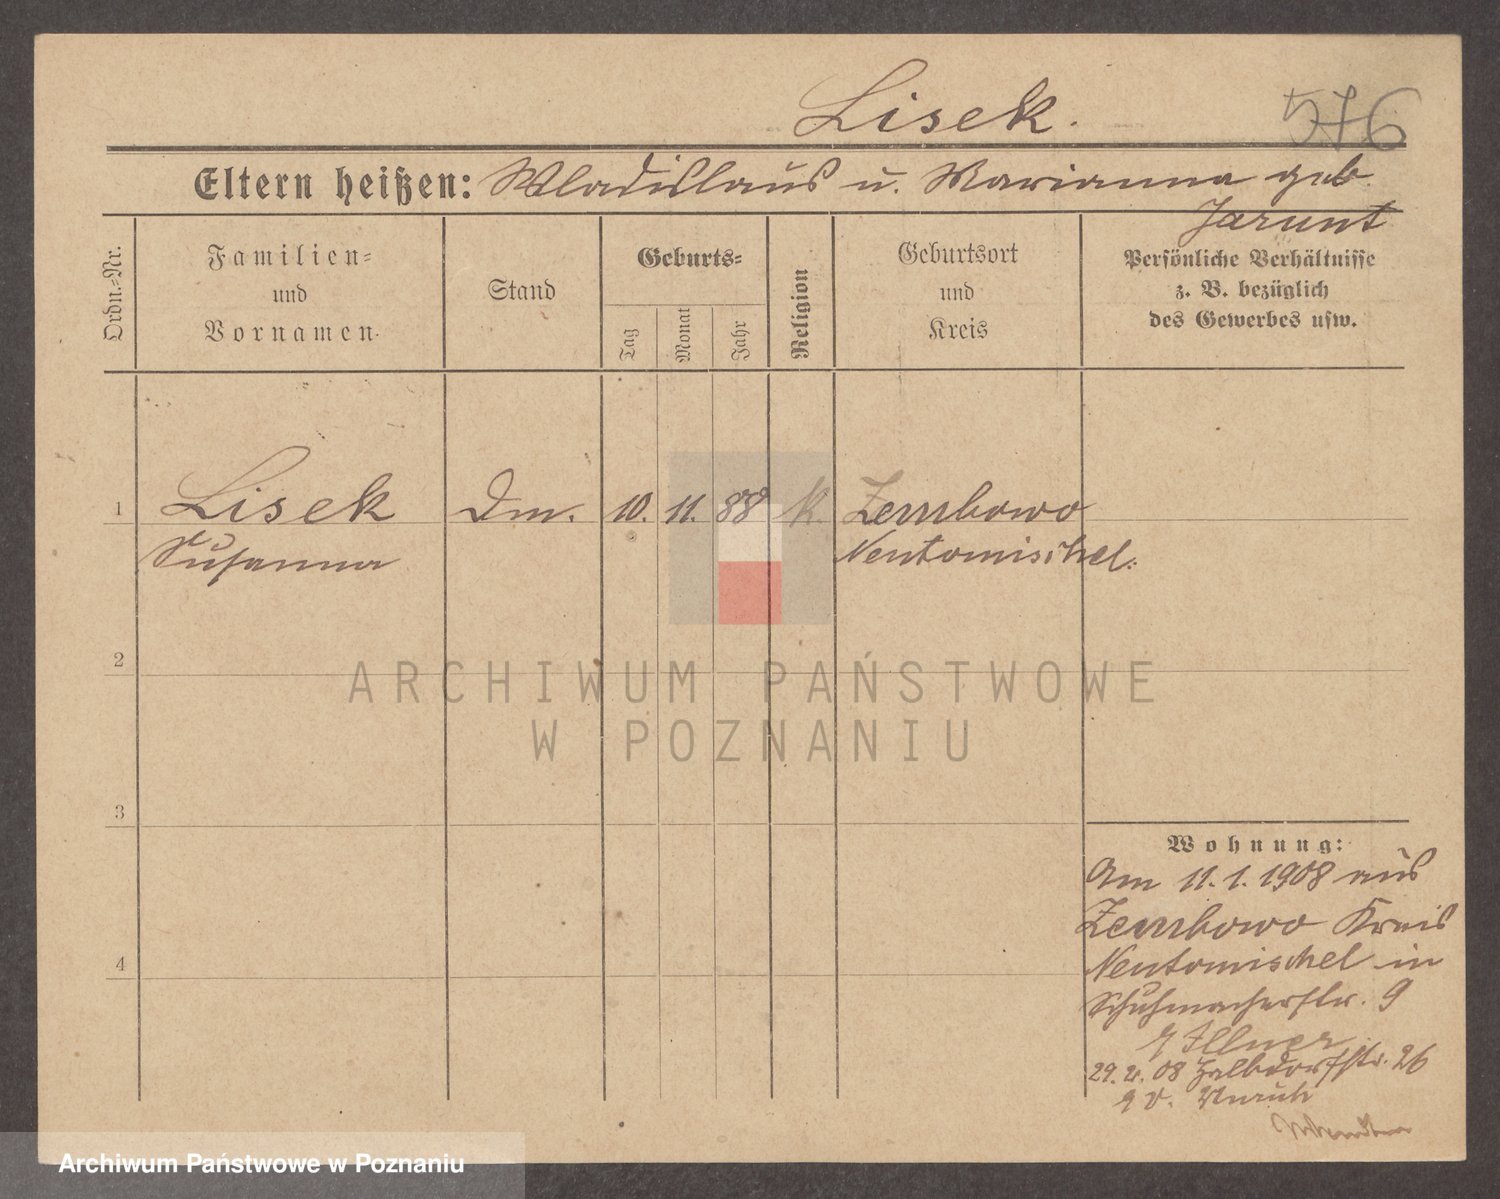 Lisek.
576
Eltern heißen: Wladislaus u. Marianna geb.
Jarunt
Ordn.-Nr.
Familien-
und
Vornamen.
Stand
Geburts-
Tag
Monat
Jahr
Religion
Geburtsort
und
Kreis
Persönliche Verhältnisse
z. B. bezüglich
des Gewerbes usw.
1 Lisek Dm. 10. 11. 88 K. Zembowo
Susanna Neutomischel.
2
3
4
Wohnung:
Am 11.1.1908 aus
Zembowo Kreis
Neutomischel in
Schuhmacherstr. 9
Illner
29. 08 Halbdorfstr. 26
Unruh
ARCHIWUM PAŃSTWOWE
W POZNANIU
Archiwum Państwowe w Poznaniu